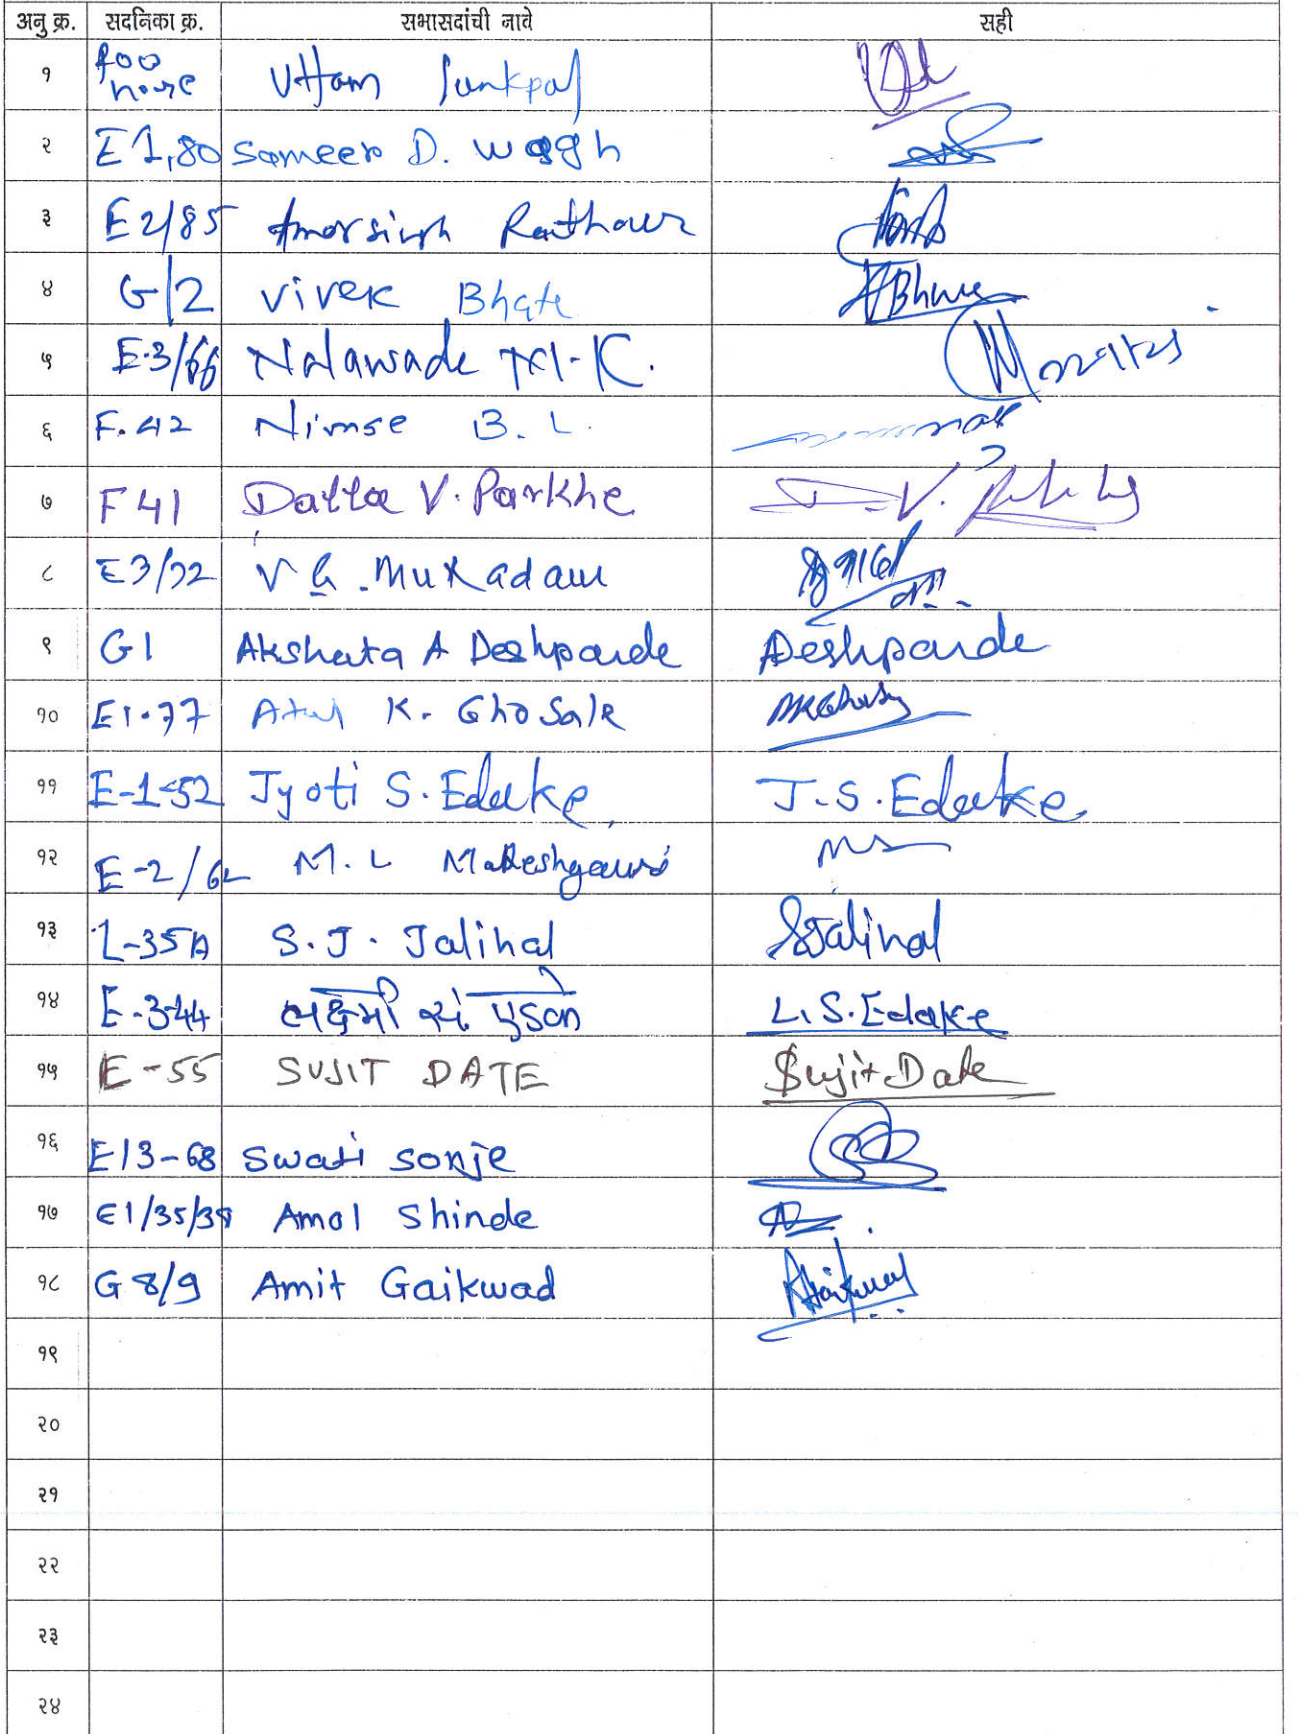 अनु क्र. सदनिका क्र. सभासदांची नावे सही
१ Uttam Sunkpal
२ E1,80 Sameer D. Wagh
३ E2/85 Amarsingh Rathour
४ G/2 Vivek Bhate
५ E-3/66 Nalawade K.
६ F-42 Nimse B. L.
७ F 41 Datta V. Parkhe D.V.
८ E3/72 V G. Mukadam
९ G1 Akshata A Deshpande ADeshpande
१० E1-77 Atul K. Ghosale
११ E-1-52 Jyoti S. Edake J.S. Edake
१२ E-2/62 M. L Maheshgauri
१३ L-35A S. J. Jalihal SJalihal
१४ E-3-44 लक्ष्मी सं. एडके L. S. Edake
१५ E-55 SUJIT DATE Sujit Date
१६ E13-68 Swati Sonje
१७ E1/35/38 Amol Shinde
१८ G 8/9 Amit Gaikwad AGaikwad
१९
२०
२१
२२
२३
२४